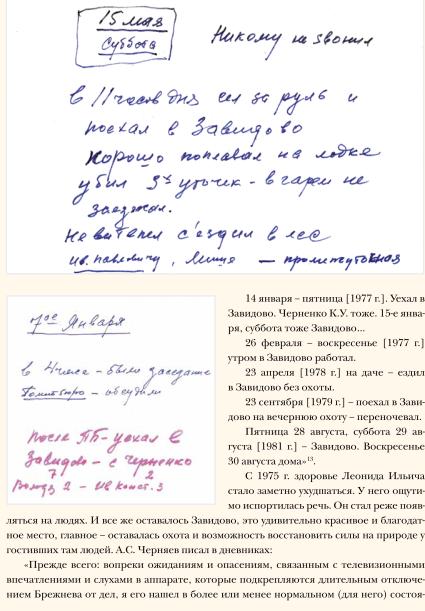 15 мая
суббота
Никому не звонил
В 11 часов дня сел за руль и
поехал в Завидово
Хорошо поплавал на лодке
убил 3х уточек - в гарем не
заезжал.
съездил в лес
7ое Января
в 4 часа - было заседание
Политбюро - обсудили
После ПБ - уехал в
Завидово - с Черненко
14 января – пятница [1977 г.]. Уехал в
Завидово. Черненко К.У. тоже. 15-е янва-
ря, суббота тоже Завидово...
26 февраля – воскресенье [1977 г.]
утром в Завидово работал.
23 апреля [1978 г.] на даче – ездил
в Завидово без охоты.
23 сентября [1979 г.] – поехал в Зави-
дово на вечернюю охоту – переночевал.
Пятница 28 августа, суббота 29 ав-
густа [1981 г.] – Завидово. Воскресенье
30 августа дома»¹³.
С 1975 г. здоровье Леонида Ильича
стало заметно ухудшаться. У него ощути-
мо испортилась речь. Он стал реже появ-
ляться на людях. И все же оставалось Завидово, это удивительно красивое и благодат-
ное место, главное – оставалась охота и возможность восстановить силы на природе у
гостивших там людей. А.С. Черняев писал в дневниках:
«Прежде всего: вопреки ожиданиям и опасениям, связанным с телевизионными
впечатлениями и слухами в аппарате, которые подкрепляются длительным отключе-
нием Брежнева от дел, я его нашел в более или менее нормальном (для него) состоя-